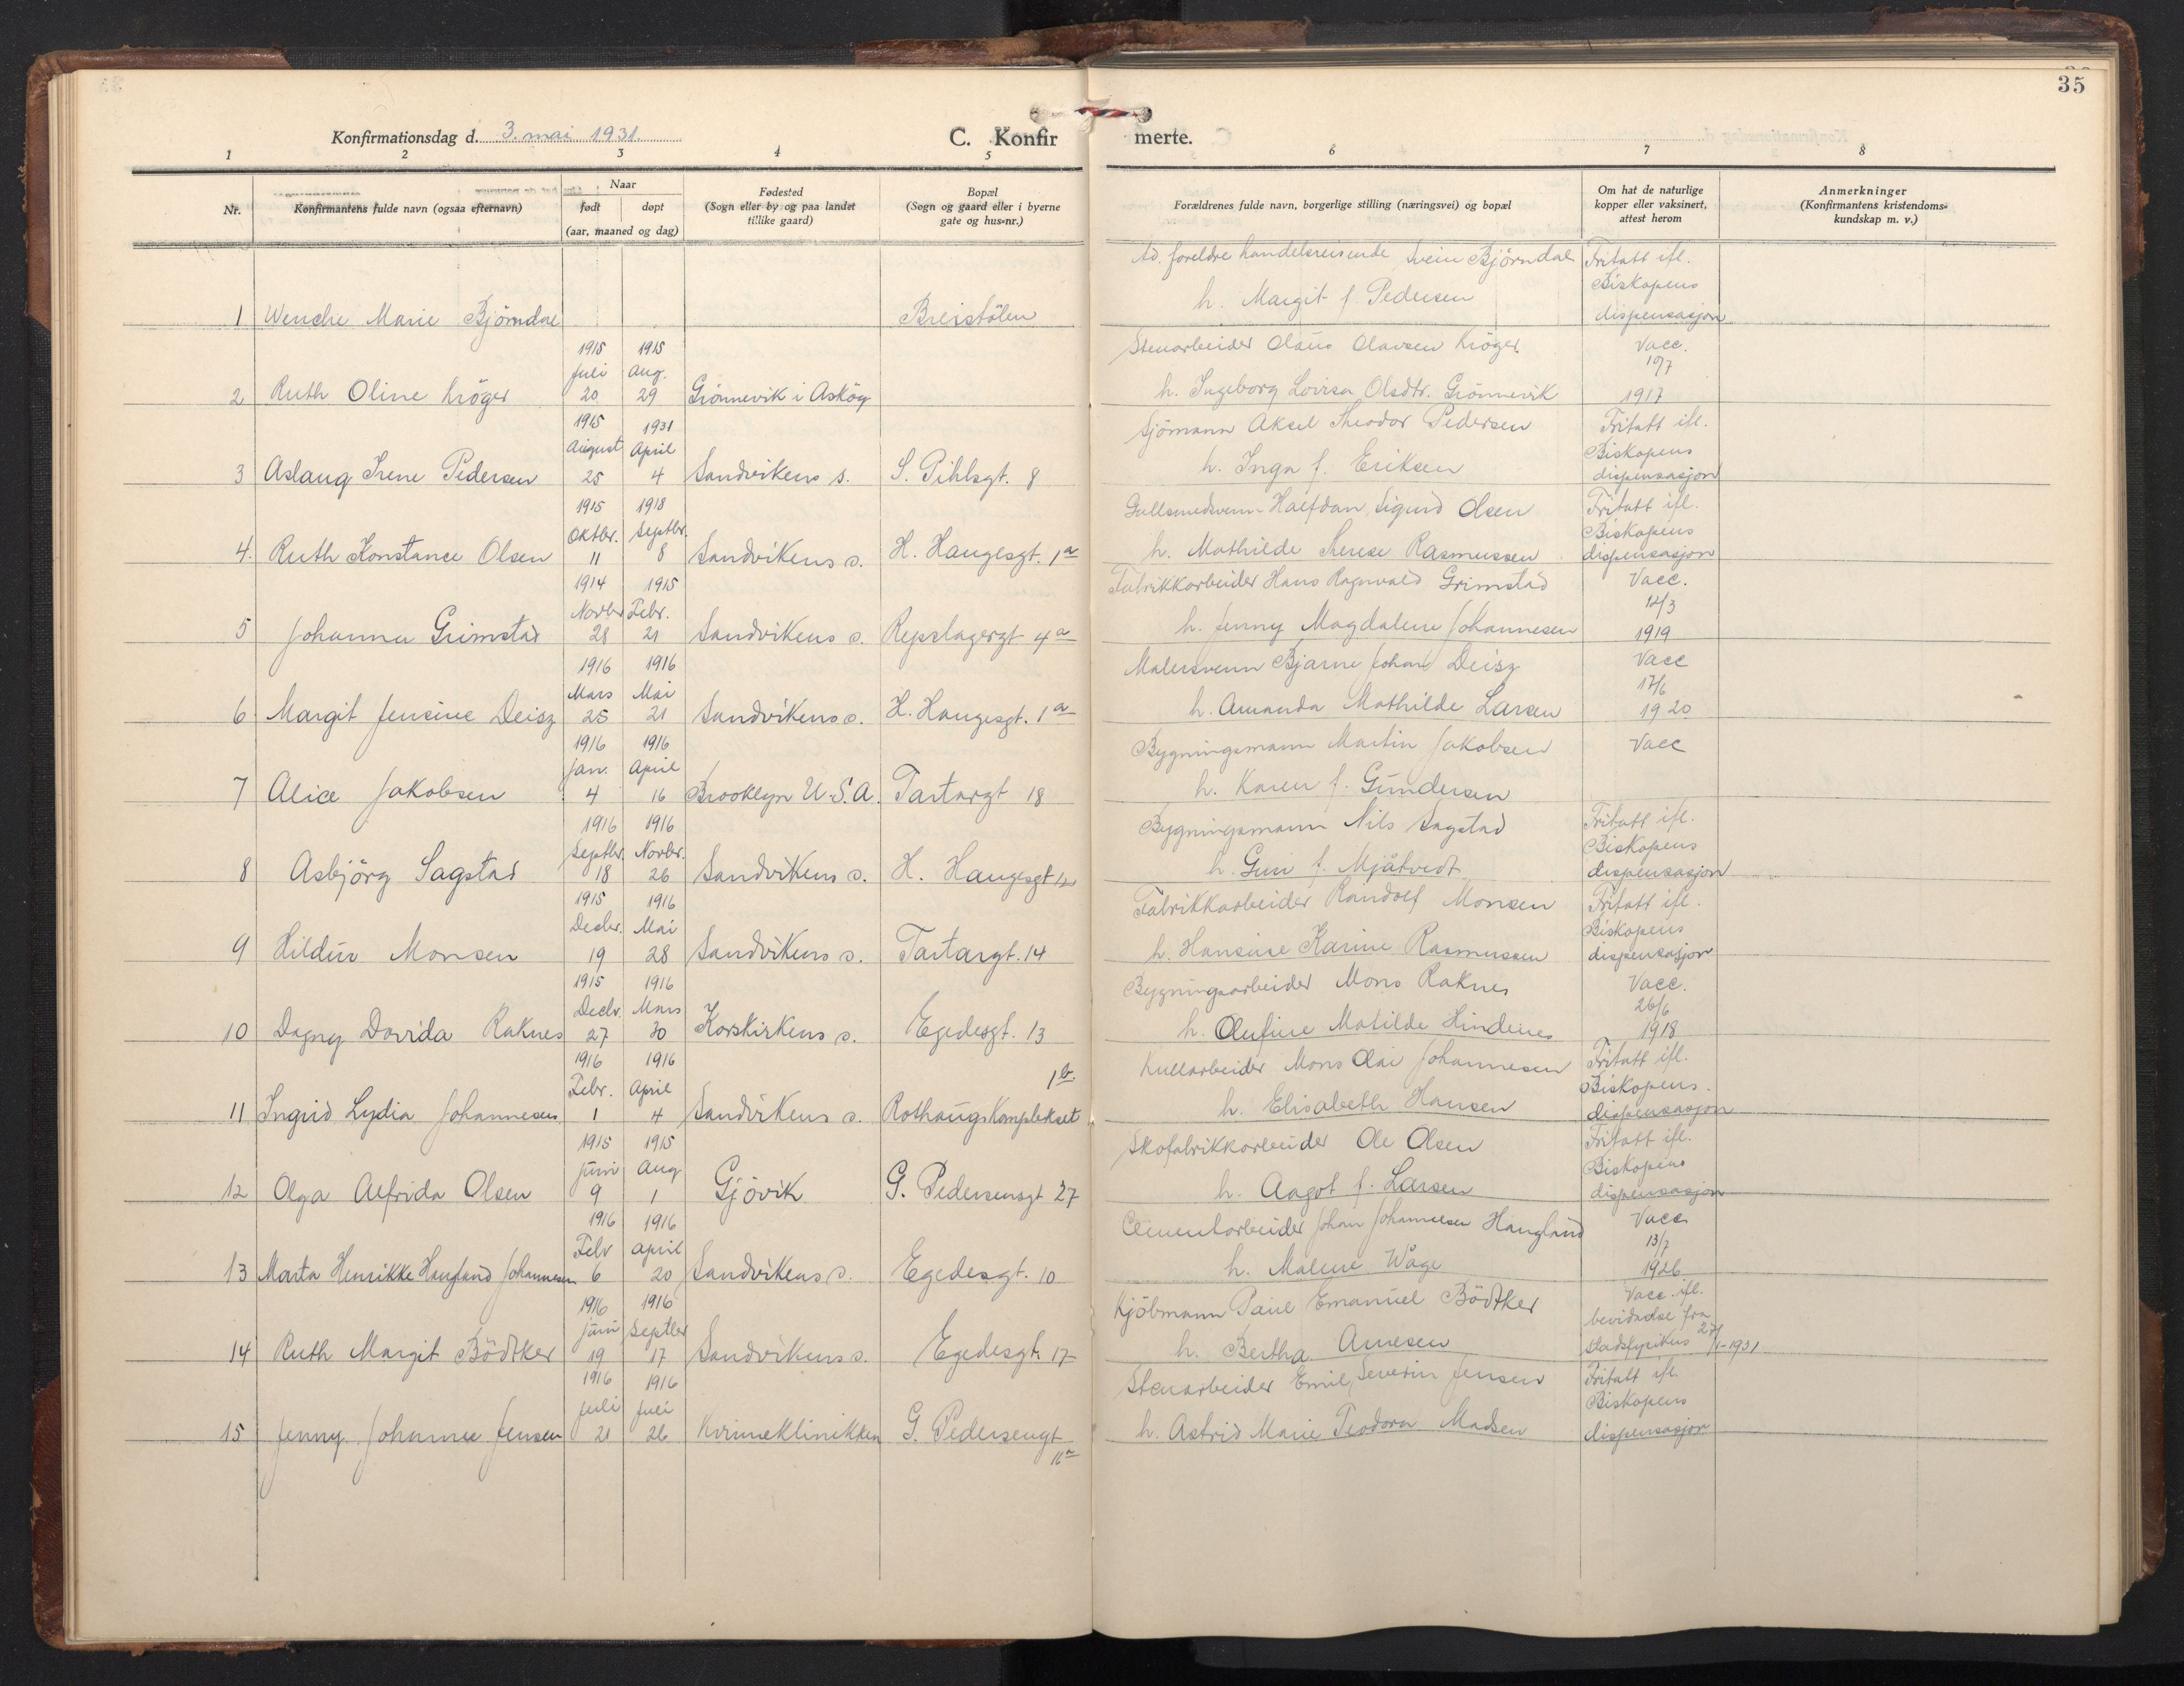 35
Konfirmationsdag d. 3. mai 1931.
C. Konfirmerte.
1 2 3 4 5 6 7 8
Nr.
Konfirmantens fulde navn (ogsaa efternavn)
Naar
født døpt
(aar, maaned og dag)
Fødested
(Sogn eller by og paa landet
tillike gaard)
Bopæl
(Sogn og gaard eller i byerne
gate og hus=nr.)
Forældrenes fulde navn, borgerlige stilling (næringsvei) og bopæl
Om hat de naturlige
kopper eller vaksinert,
attest herom
Anmerkninger
(Konfirmantens kristendoms=
kundskap m. v.)
Ad. foreldre handelsreisende Svein Björndal Fritatt ifl.
h. Margit f. Pedersen Biskopens
1 Wenche Marie Björndal Breistölen dispensasjon
1915 1915 Stenarbeider Olaus Olavsen Kröger Vacc.
Juli Aug. 10/7
2 Ruth Oline Kröger 20 29 Grönnevik i Asköy h. Ingeborg Lovisa Olsdtr. Grönnevik 1917
1915 1931 Sjömann Aksel Theodor Pedersen Fritatt ifl.
August April Biskopens
3 Aslaug Irene Pedersen 25 4 Sandvikens s. S. Pihlsgt. 8 h. Inga f. Eriksen dispensasjon
1915 1918 Gullsmedsvenn Halfdan Sigurd Olsen Fritatt ifl.
Oktbr. Septbr. Biskopens
4. Ruth Konstance Olsen 11 8 Sandvikens s. H. Haugesgt. 1a h. Mathilde Therese Rasmussen dispensasjon
1914 1915 Fabrikkarbeider Hans Ragnvald Grimstad Vacc.
Novbr Febr. 12/3
5 Johanna Grimstad 28 21 Sandvikens s. Repslagergt 4a h. Jenny Magdalene Johannesen 1919
1916 1916 Malersvenn Bjarne Johan Deisz Vacc
Mars Mai 17/6
6 Margit Jensine Deisz 25 21 Sandvikens s. H. Haugesgt. 1a h. Amanda Mathilde Larsen 1920
1916 1916 Bygningsmann Martin Jakobsen Vacc
Jan. April
7 Alice Jakobsen 4 16 Brooklyn U.S.A. Tartargt 18 h. Karen f. Gundersen
1916 1916 Bygningsmann Nils Sagstad Fritatt ifl.
Septbr. Novbr. Biskopens
8 Asbjörg Sagstad 18 26 Sandvikens s. H. Haugesgt 12 h. Guri f. Mjåtvedt dispensasjon
1915 1916 Fabrikkarbeider Randolf Monsen Fritatt ifl.
Decbr. Mai Biskopens
9 Hildur Monsen 19 28 Sandvikens s. Tartargt. 14 h. Hansine Karine Rasmussen dispensasjon
1915 1916 Bygningsarbeider Mons Raknes Vacc.
Decbr. Mars 26/6
10 Dagny Davida Raknes 27 30 Korskirkens s. Egedesgt. 13 h. Olufine Matilde Hindenes 1918
1916 1916 Kullarbeider Mons Olai Johannesen Fritatt ifl.
Febr. April 1b. Biskopens.
11 Ingrid Lydia Johannesen 1 4 Sandvikens s. Rothaugskomplekset h. Elisabeth Hansen dispensasjon
1915 1915 Skofabrikkarbeider Ole Olsen Fritatt ifl.
Juni Aug Biskopens
12 Olga Alfrida Olsen 9 1 Gjövik G. Pedersensgt 27 h. Aagot f. Larsen dispensasjon
1916 1916 Cementarbeider Johan Johannesen Haugland Vacc
Febr april 13/7
13 Marta Henrikke Haugland Johannesen 6 20 Sandvikens s. Egedesgt. 10 h. Malene Wåge 1926
1916 1916 Kjöbmann Paul Emanuel Bödtker Vacc. ifl.
Juni Septbr bevidnelse fra
14 Ruth Margit Bödtker 19 17 Sandvikens s. Egedesgt. 17 h. Bertha Arnesen Stadsfysikus 27/1-1931
1916 1916 Stenarbeider Emil Severin Jensen Fritatt ifl.
Juli Juli Biskopens
15 Jenny Johanne Jensen 21 26 Kvinneklinikken G. Pedersengt h. Astrid Marie Teodora Madsen dispensasjon
16a